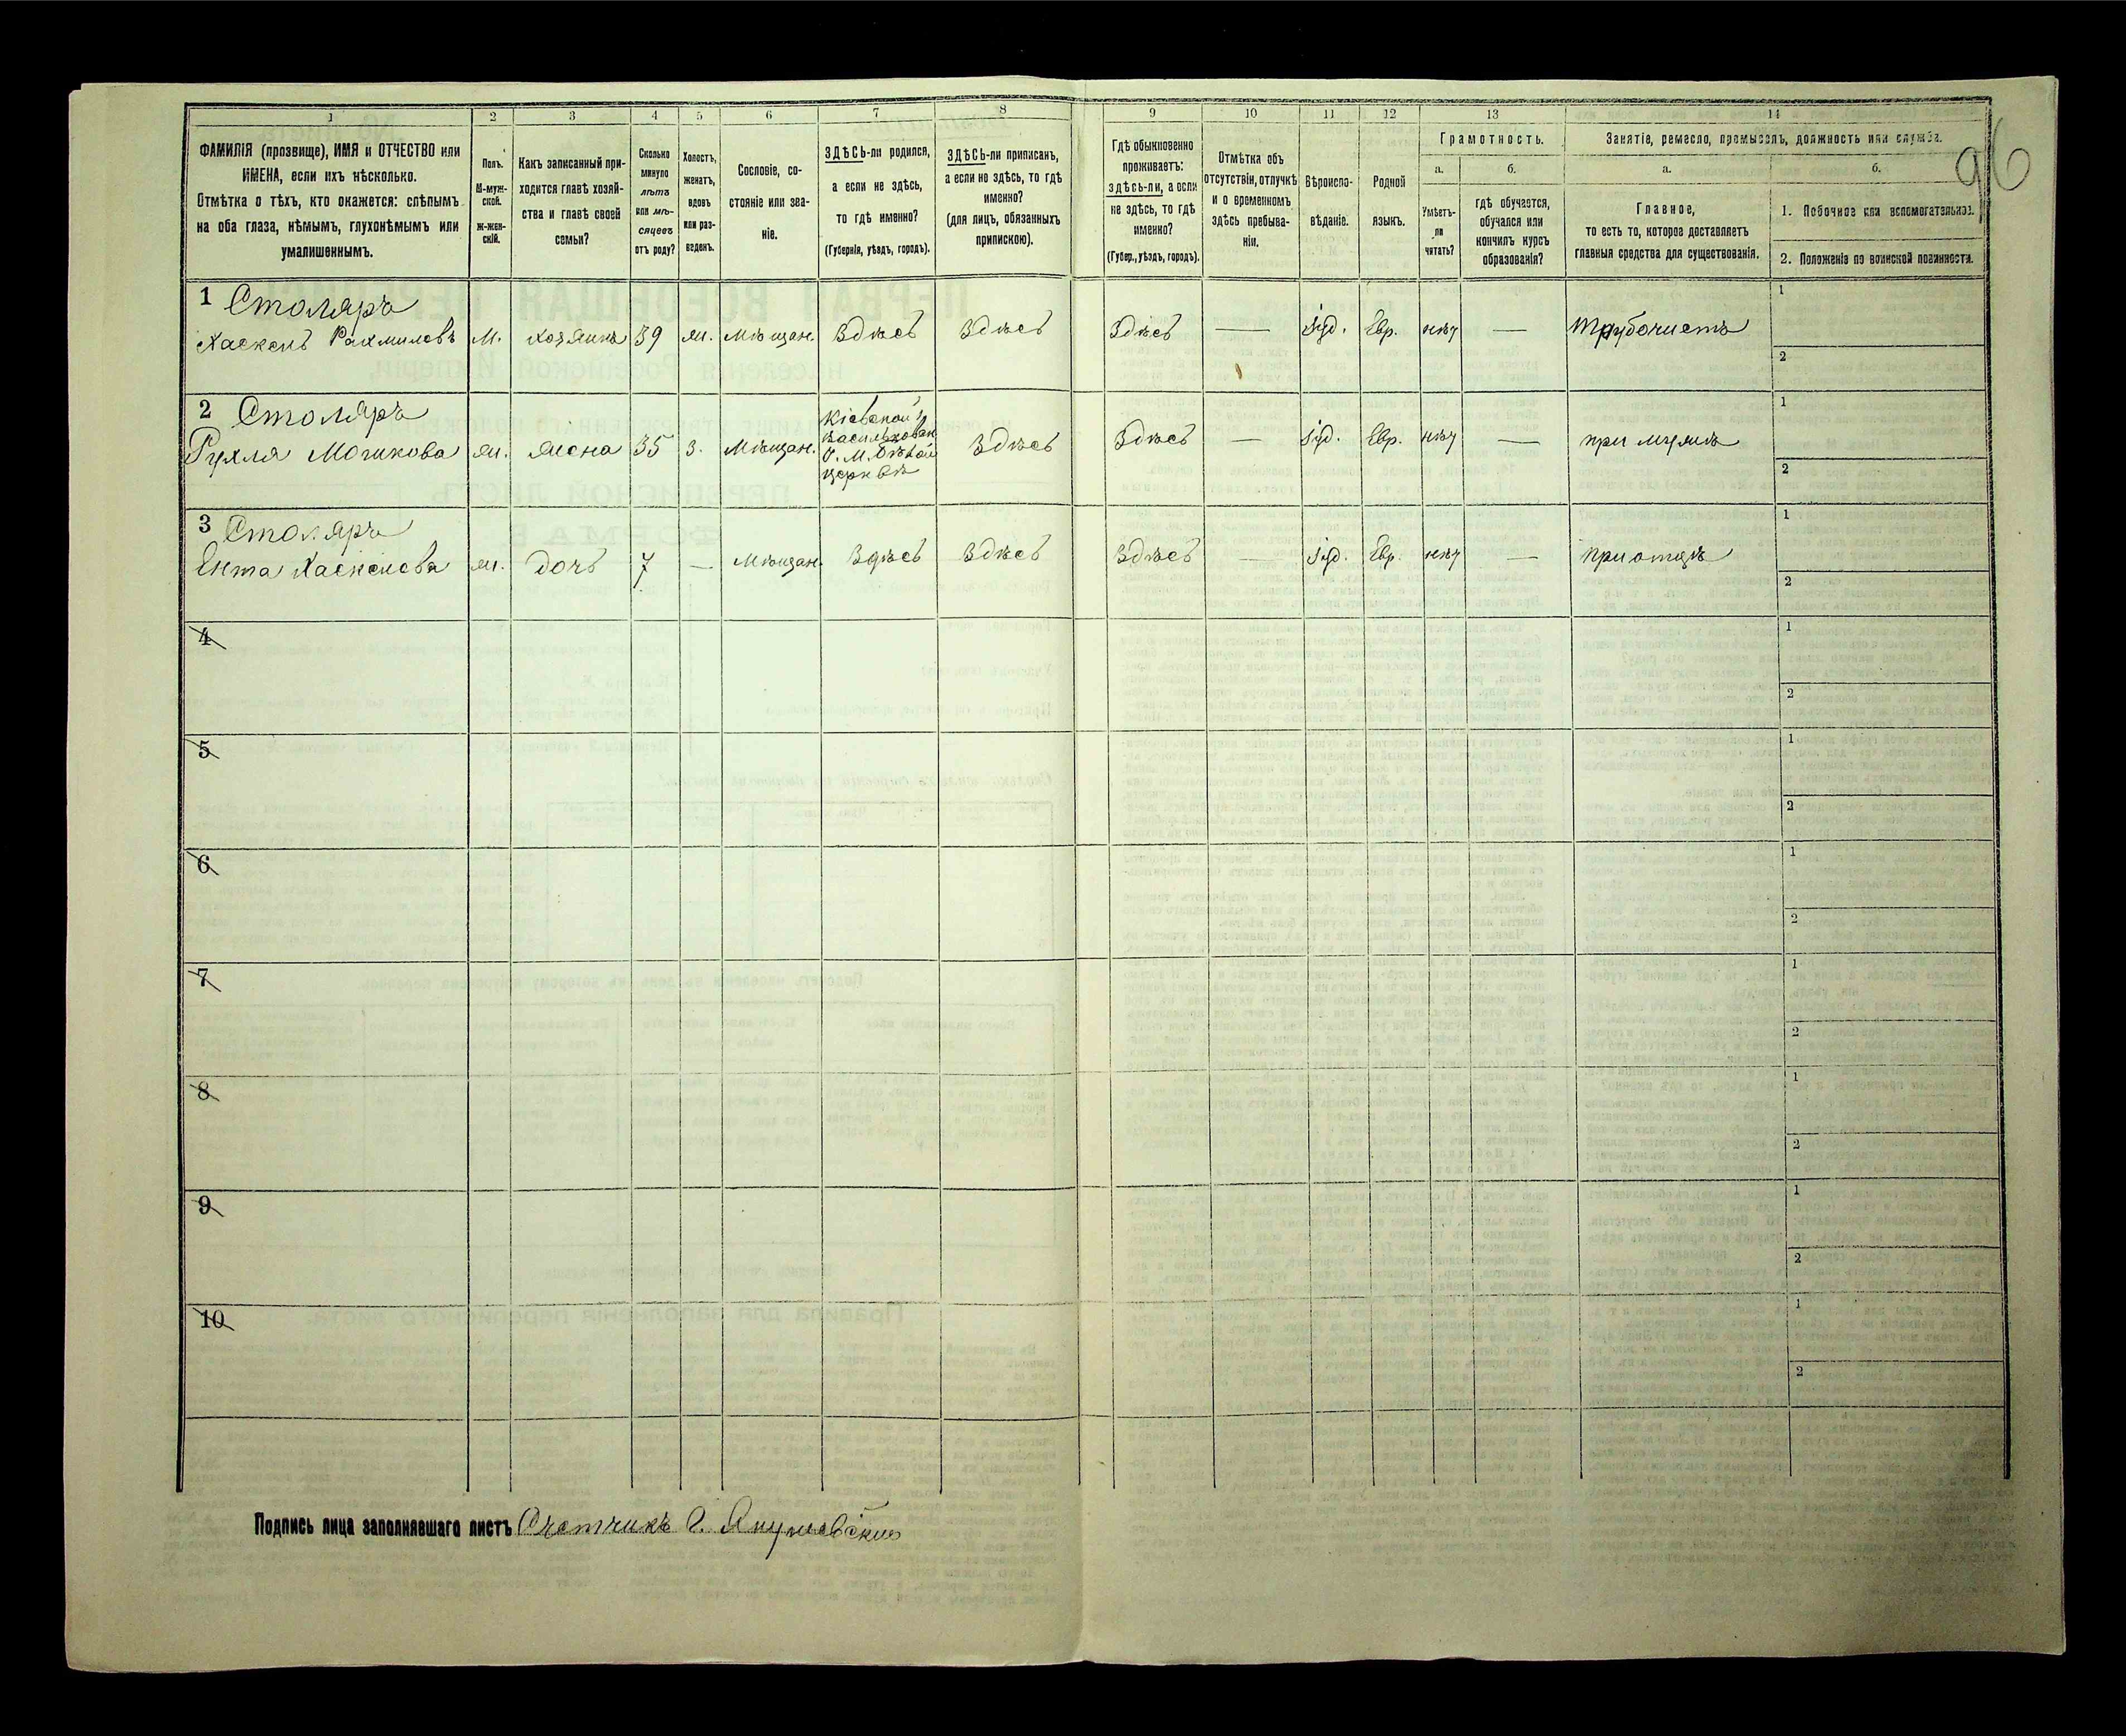 96
1 2 3 4 5 6 7 8 9 10 11 12 13 14
ФАМИЛІЯ (прозвище), ИМЯ и ОТЧЕСТВО или
ИМЕНА, если ихъ нѣсколько.
Отмѣтка о тѣхъ, кто окажется: слѣпымъ
на оба глаза, нѣмымъ, глухонѣмымъ или
умалишеннымъ.
Полъ.
М-муж-
ской.
Ж-жен-
скій.
Какъ записанный при-
ходится главѣ хозяй-
ства и главѣ своей
семьи?
Сколько
минуло
лѣтъ
или мѣ-
сяцевъ
отъ роду?
Холостъ,
женатъ,
вдовъ
или раз-
веденъ.
Сословіе, со-
стояніе или зва-
ніе.
ЗДѢСЬ-ли родился,
а если не здѣсь,
то гдѣ именно?
(Губернія, уѣздъ, городъ).
ЗДѢСЬ-ли приписанъ,
а если не здѣсь, то гдѣ
именно?
(для лицъ, обязанныхъ
припискою).
Гдѣ обыкновенно
проживаетъ:
здѣсь-ли, а если
не здѣсь, то гдѣ
именно?
(Губер., уѣздъ, городъ).
Отмѣтка объ
отсутствіи, отлучкѣ
и о временномъ
здѣсь пребыва-
ніи.
Вѣроиспо-
вѣданіе.
Родной
языкъ.
Грамотность.
а.
Умѣетъ-
ли
читать?
б.
гдѣ обучается,
обучался или
кончилъ курсъ
образованія?
Занятіе, ремесло, промыселъ, должность или служба.
а.
Главное,
то есть то, которое доставляетъ
главныя средства для существованія.
б.
1. Побочное или вспомогательное.
2. Положеніе по воинской повинности.
1 Столяръ
Хаскель Рахмиловъ М. хозяинъ 39 ж. Мѣщан. Здѣсь Здѣсь Здѣсь — Іуд. Евр. нѣт — трубочистъ
1
2
2 Столяръ
Рухля Мошкова ж. жена 35 з. Мѣщан. Кіевской г. Васильковск. у. М. Бѣлой церкви Здѣсь Здѣсь — Іуд. Евр. нѣт — при мужѣ
1
2
3 Столяръ
Ента Хаскелева ж. дочь 7 — Мѣщан. Здѣсь Здѣсь Здѣсь — Іуд. Евр. нѣт — при отцѣ
1
2
4
1
2
5
1
2
6
1
2
7
1
2
8
1
2
9
1
2
10
1
2
Подпись лица заполнявшаго листъ Счетчикъ